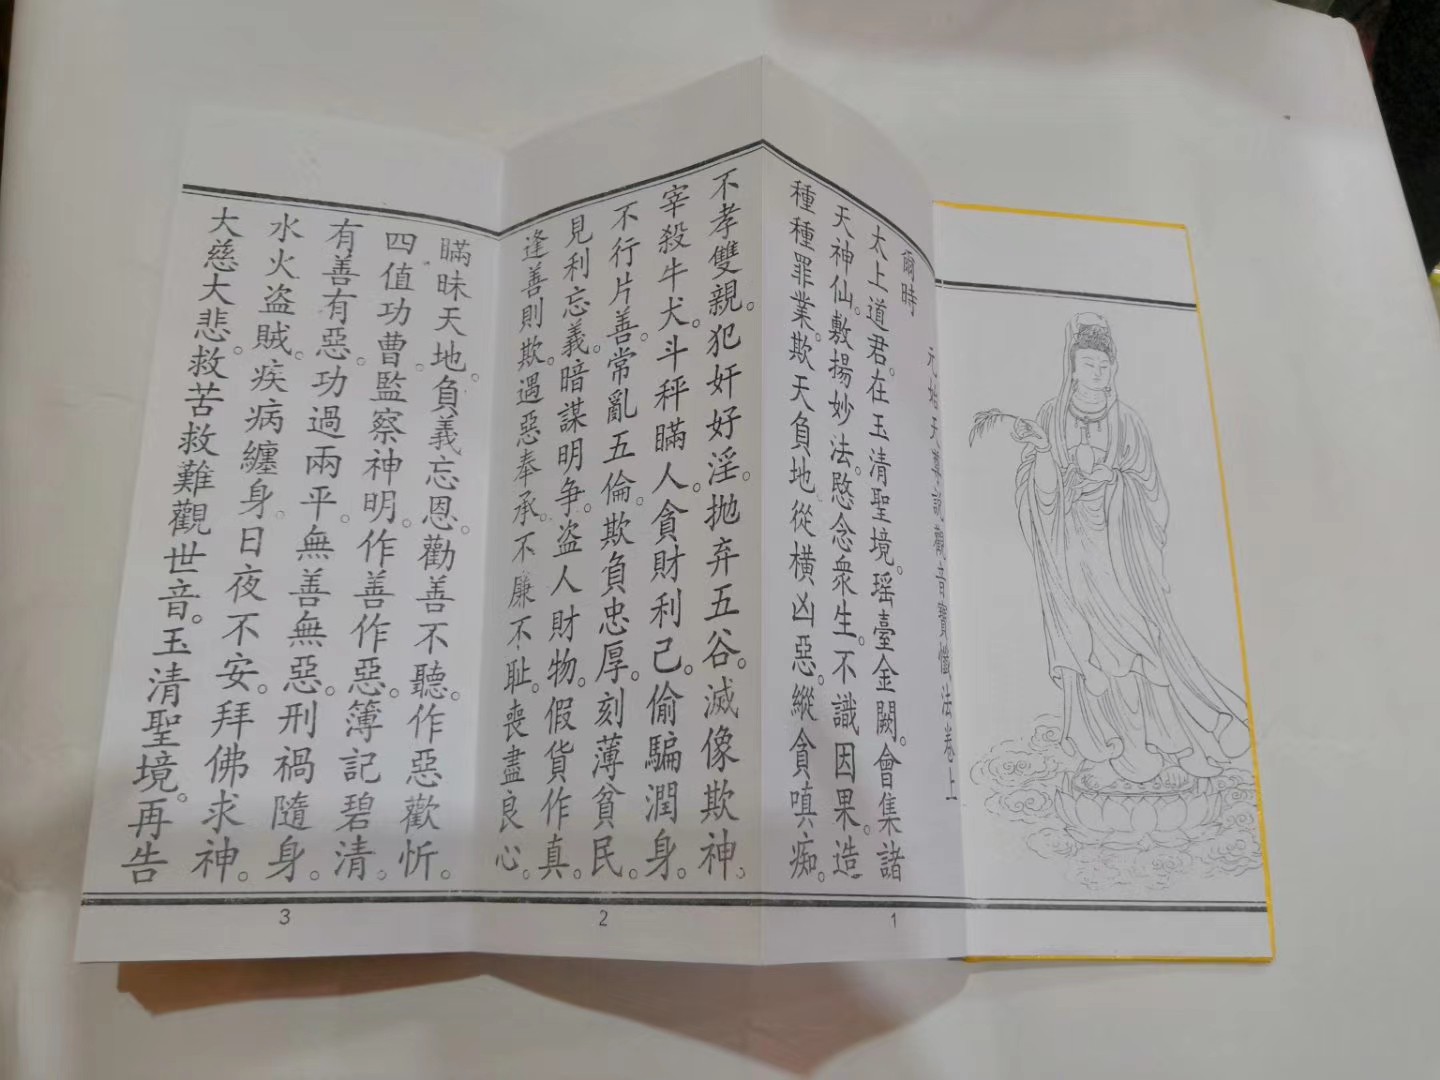 元始天尊說觀音寶懺法卷上
爾時
太上道君。在玉清聖境。瑶臺金闕。會集諸
天神仙。敷揚妙法。愍念衆生。不識因果。造
種種罪業。欺天負地從横凶惡。縱貪嗔痴。
1
不孝雙親。犯奸好淫。抛弃五谷。滅像欺神。
宰殺牛犬。斗秤瞞人。貪財利己。偷騙潤身。
不行片善。常亂五倫。欺負忠厚。刻薄貧民。
見利忘義。暗謀明争。盗人財物。假貨作真。
逢善則欺。遇惡奉承。不廉不耻。喪盡良心。
2
瞞昧天地。負義忘恩。勸善不聽。作惡歡忻。
四值功曹。監察神明。作善作惡。簿記碧清。
有善有惡。功過兩平。無善無惡。刑禍隨身。
水火盗賊。疾病纏身。日夜不安。拜佛求神。
大慈大悲。救苦救難觀世音。玉清聖境。再告
3